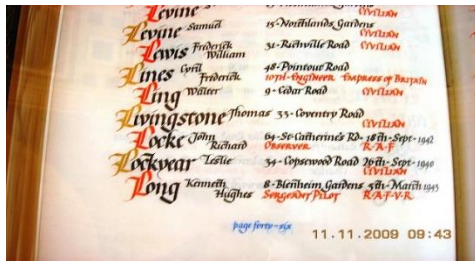 Levine
CIVILIAN
Levine Samuel 15 - Northlands Gardens
CIVILIAN
Lewis Frederick William 31 - Richville Road
CIVILIAN
Lines Cyril Frederick 48 - Pointout Road
10TH - ENGINEER EMPRESS OF BRITAIN
Ling Walter 9 - Cedar Road
CIVILIAN
Livingstone Thomas 33 - Coventry Road
CIVILIAN
Locke John Richard 64 - St - Catherine's Rd - 18th - Sept - 1942
OBSERVER R - A - F
Lockyear Leslie 34 - Copsewood Road 26th - Sept - 1940
CIVILIAN
Long Kenneth Hughes 8 - Blenheim Gardens 5th - March 1943
SERGEANT PILOT R - A - F - V - R
page forty - six
11.11.2009 09:43